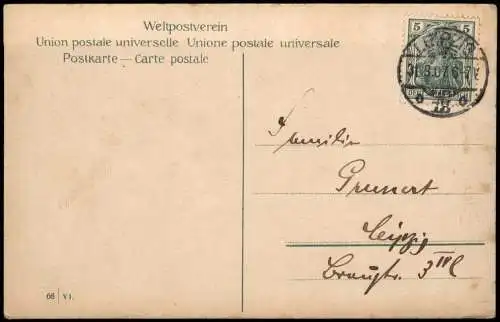 Weltpostverein
Union postale universelle Unione postale universale
Postkarte — Carte postale
5 5
LEIPZIG
31.3.07. 6-7
18
Familie
Grunert
Leipzig
3 III l
66 | VI.